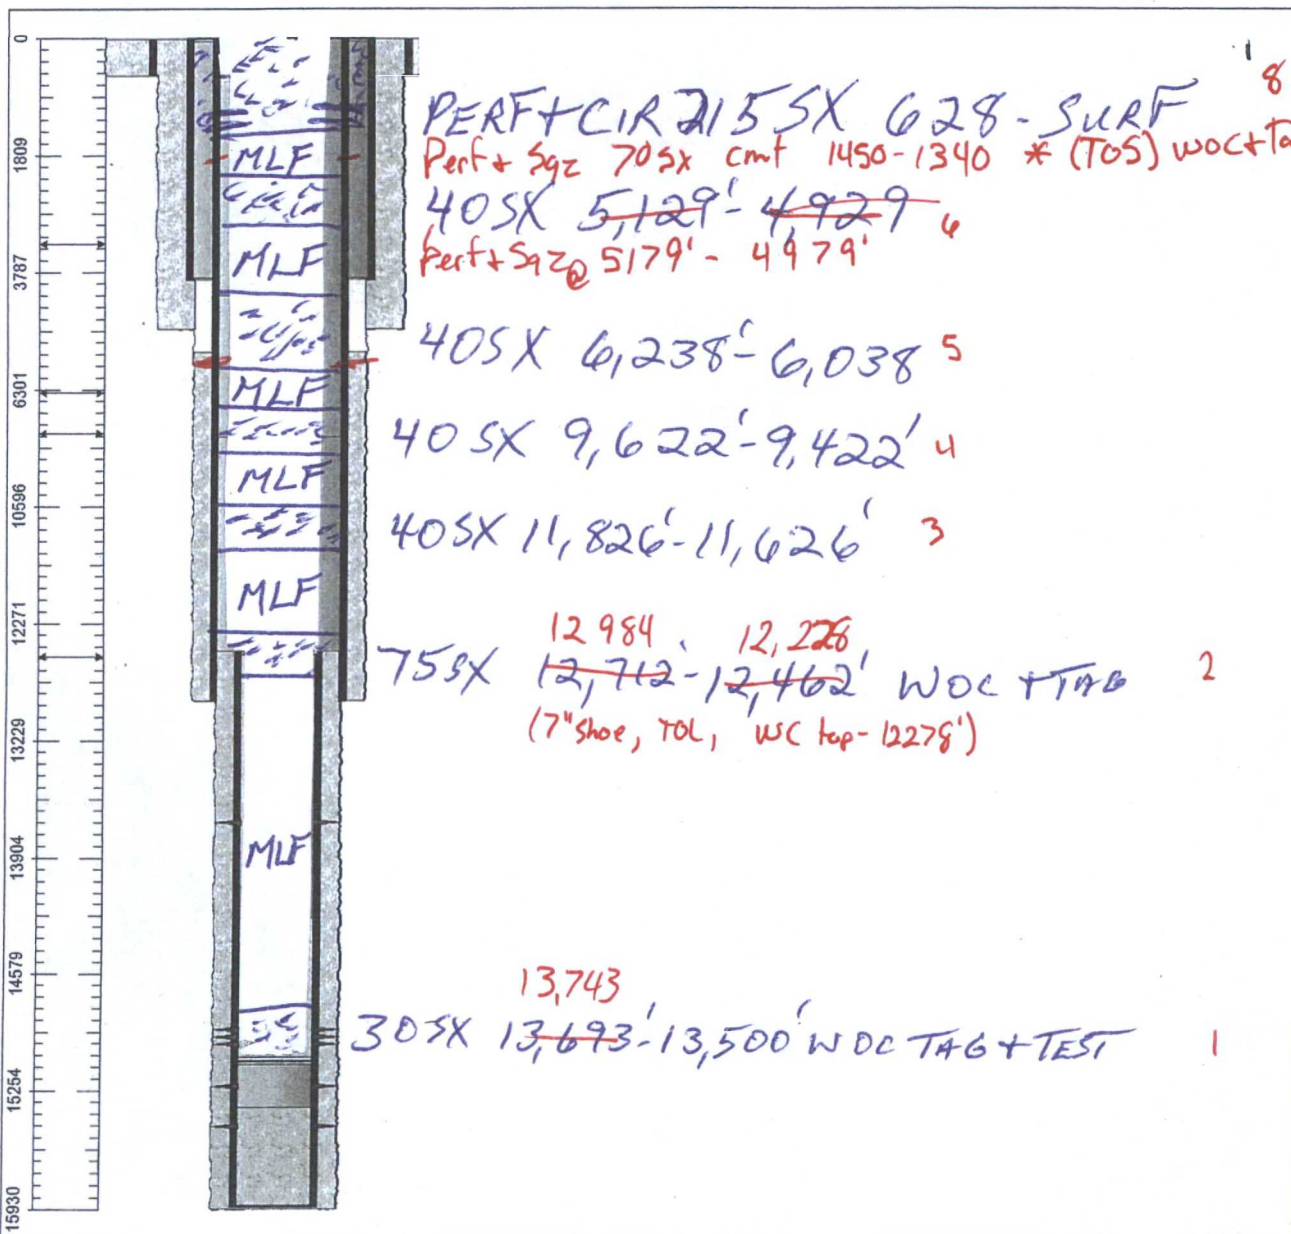 0
1809
3787
6301
10596
12271
13229
13904
14579
15254
15930
8
PERF + CIR 215 SX 628 - SURF
Perf + Sqz 70 sx cmt 1450-1340 * (TOS) WOC + Ta
40 SX 5,129' - 4,929 6
Perf + Sqz @ 5179' - 4979'
40SX 6,238'-6,038 5
40 SX 9,622'-9,422' 4
40SX 11,826'-11,626' 3
12 984 - 12,228
75SX 12,712'-12,462' WOC + TAG 2
(7" shoe, TOL, WC top - 12278')
13,743
30SX 13,693'-13,500' WOC TAG + TEST 1
MLF
MLF
MLF
MLF
MLF
MLF